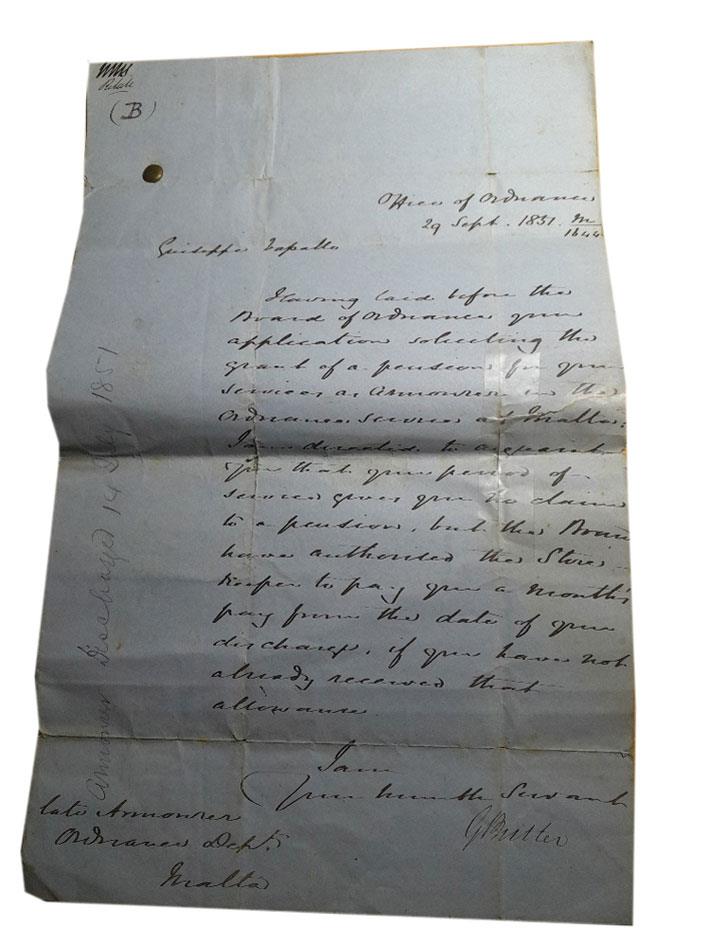 (B)
Office of Ordnance
29 Sept. 1851. M/1644
Giuseppe
Having laid before the
Board of Ordnance your
application soliciting the
grant of a pension for your
services as Armourer in the
Ordnance service at Malta;
I am directed to acquaint
you that your period of
service gives you no claim
to a pension, but the Board
have authorised the Store
keeper to pay you a month's
pay from the date of your
discharge, if you have not
already received that
allowance.
I am
Your humble Servant
G Butler
late Armourer
Ordnance Dept.
Malta
Armourer Discharged 14 1851